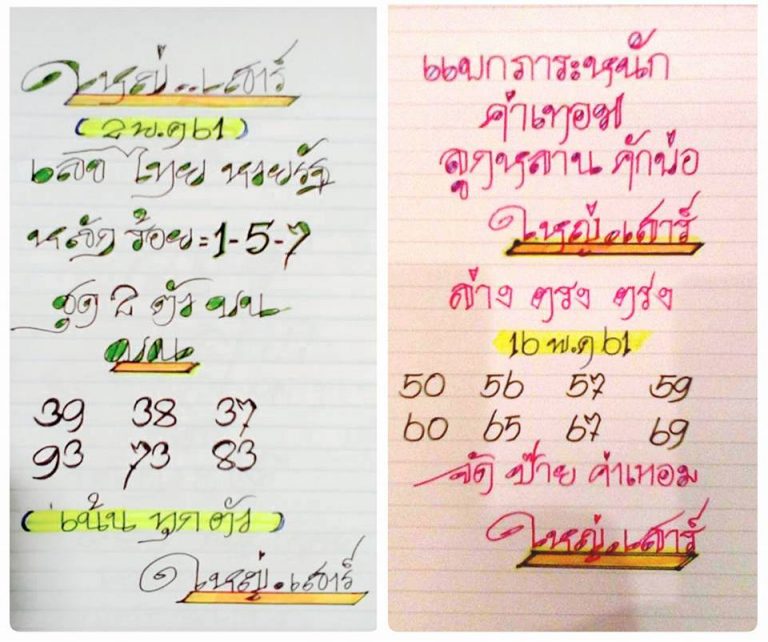 ใหญ่..เสาร์
(2 พ.ค 61)
เลข ไทย หวยรัฐ
หลัก ร้อย=1-5-7
ชุด 2 ตัว บน
บน
39 38 37
93 73 83
(เน้น ทุก ตัว)
ใหญ่.เสาร์
แบกภาระหนัก
ค่าเทอม
ลูกหลาน คักบ่อ
ใหญ่.เสาร์
ล่าง ตรง ตรง
16 พ.ค 61
50 56 57 59
60 65 67 69
จัด ป๊าย ค่าเทอม
ใหญ่.เสาร์